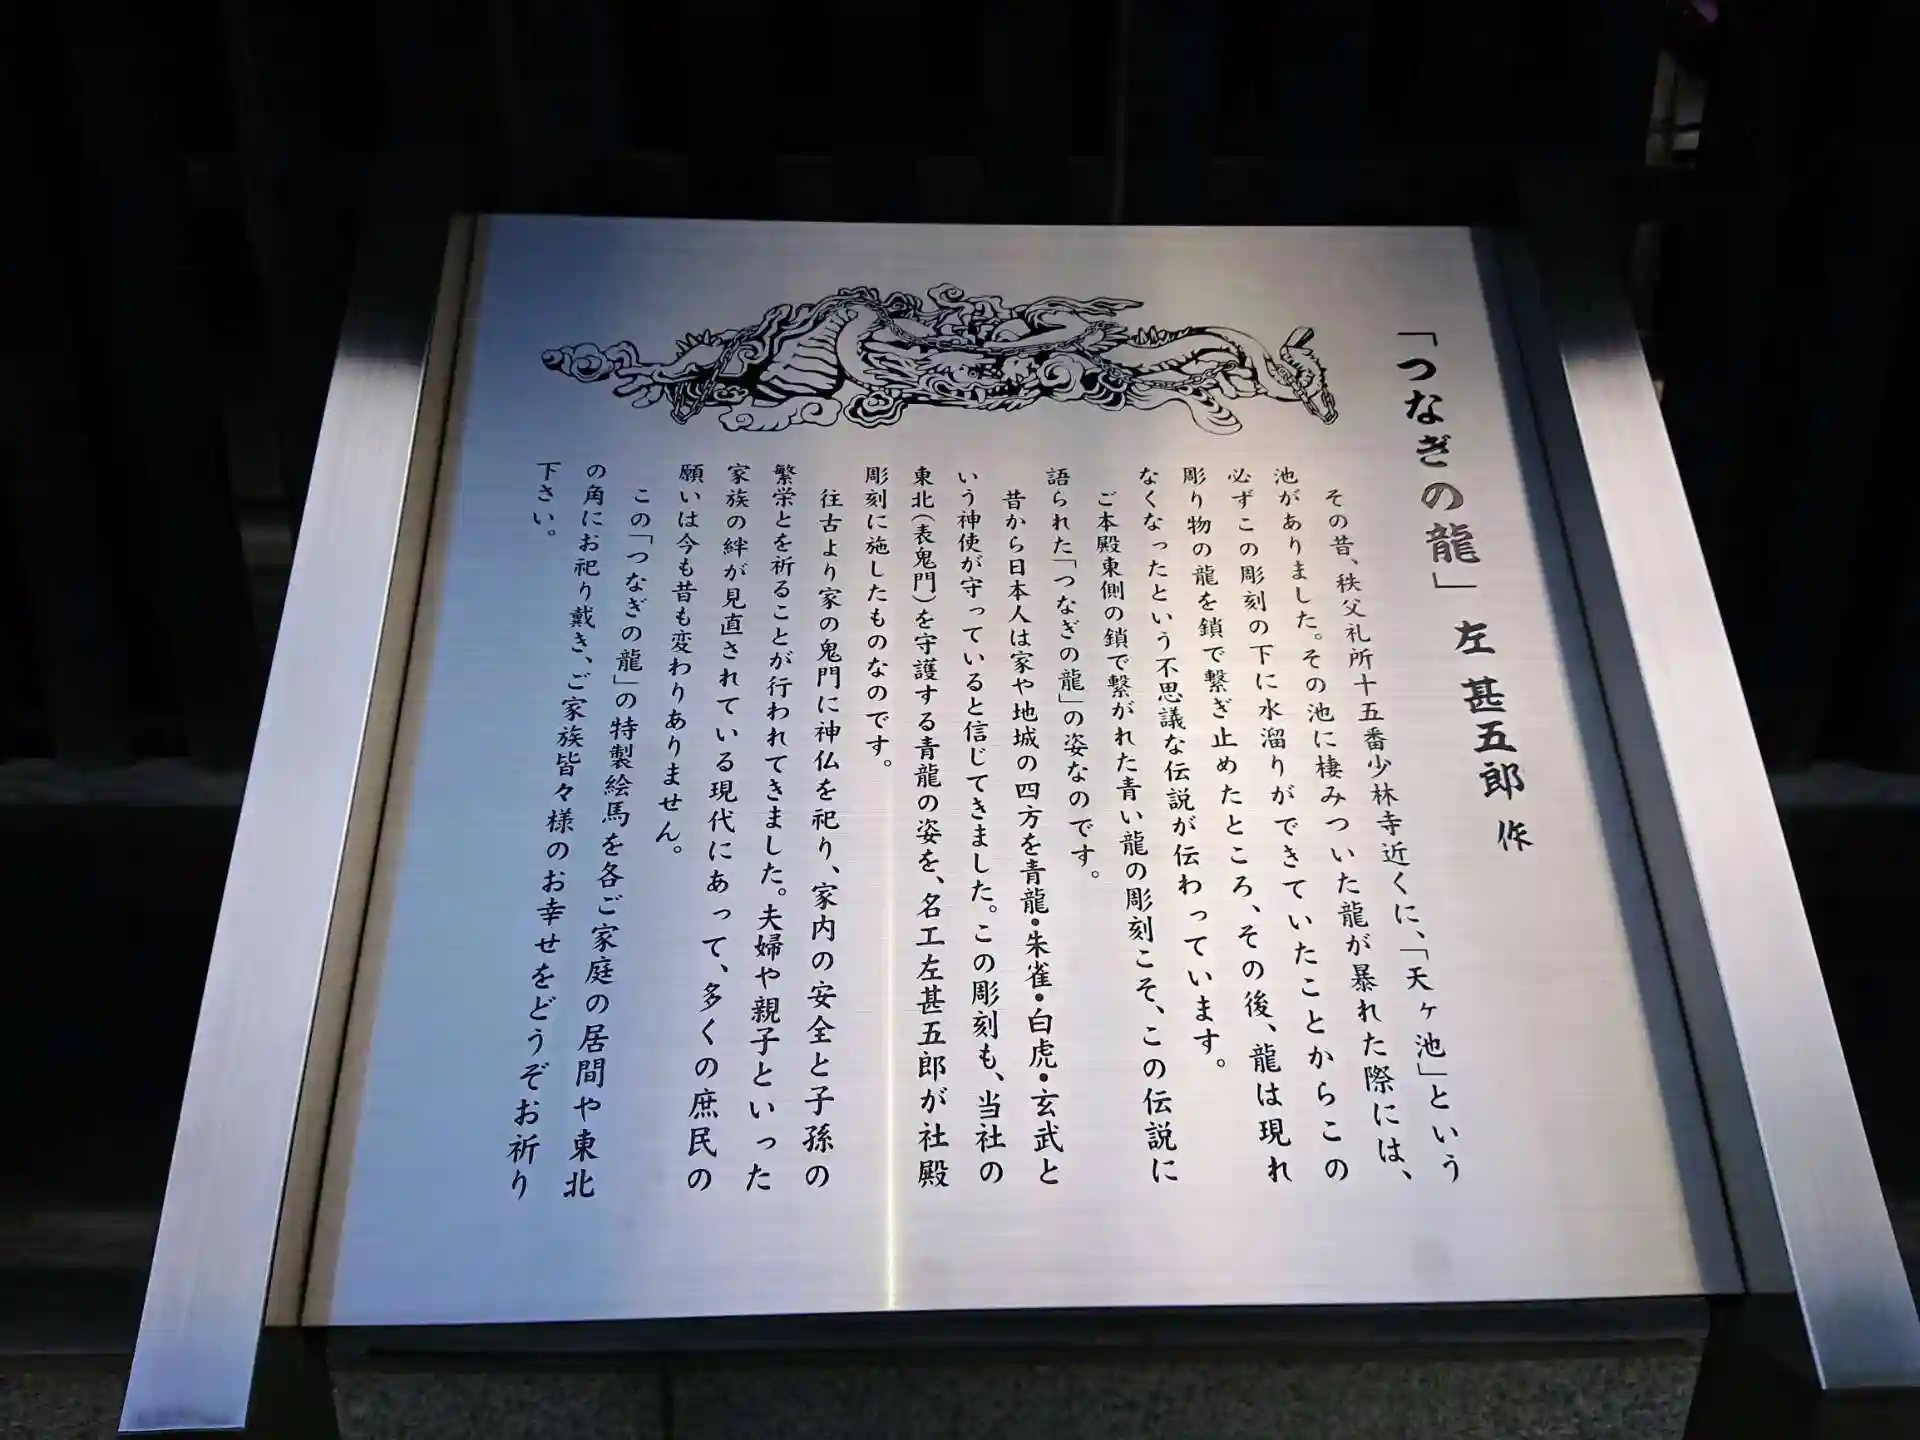 「つなぎの龍」 左 甚五郎 作
その昔、秩父札所十五番少林寺近くに、「天ヶ池」という
池がありました。その池に棲みついた龍が暴れた際には、
必ずこの彫刻の下に水溜りができていたことからこの
彫り物の龍を鎖で繋ぎ止めたところ、その後、龍は現れ
なくなったという不思議な伝説が伝わっています。
ご本殿東側の鎖で繋がれた青い龍の彫刻こそ、この伝説に
語られた「つなぎの龍」の姿なのです。
昔から日本人は家や地城の四方を青龍・朱雀・白虎・玄武と
いう神使が守っていると信じてきました。この彫刻も、当社の
東北(表鬼門)を守護する青龍の姿を、名工左甚五郎が社殿
彫刻に施したものなのです。
往古より家の鬼門に神仏を祀り、家内の安全と子孫の
繁栄とを祈ることが行われてきました。夫婦や親子といった
家族の絆が見直されている現代にあって、多くの庶民の
願いは今も昔も変わりありません。
この「つなぎの龍」の特製絵馬を各ご家庭の居間や東北
の角にお祀り戴き、ご家族皆々様のお幸せをどうぞお祈り
下さい。